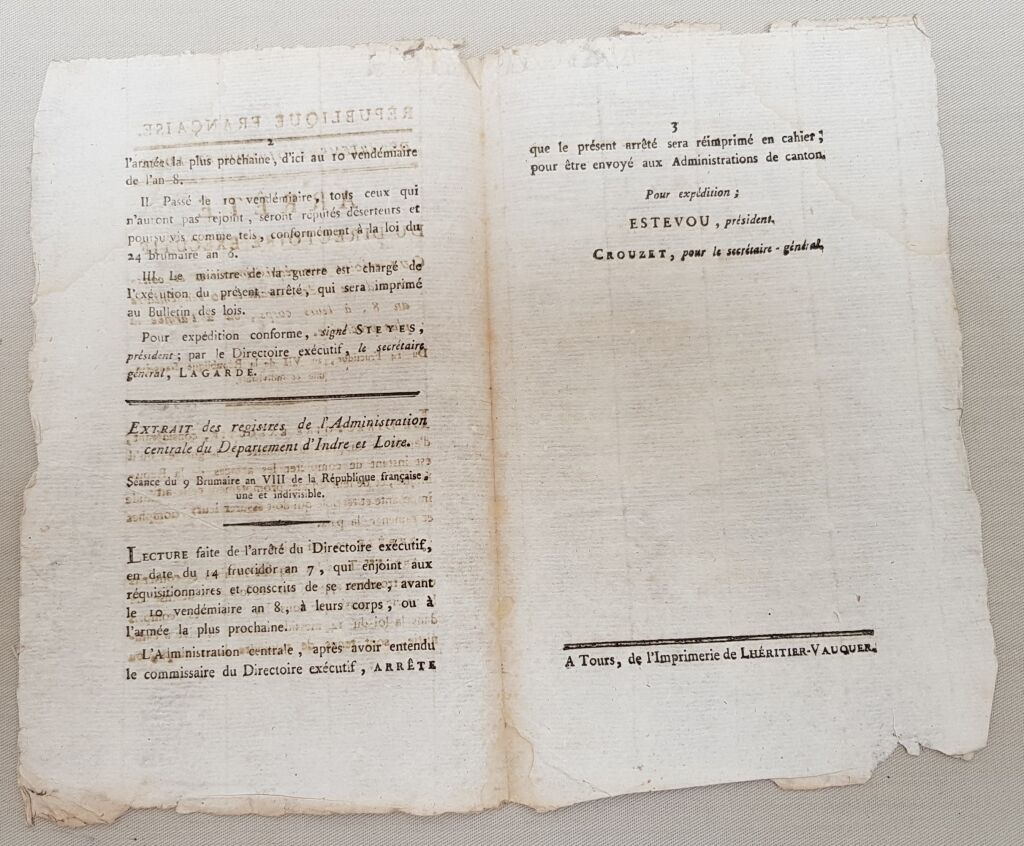 2
l'armée la plus prochaine, d'ici au 10 vendémiaire
de l'an 8.
II. Passé le 10 vendémiaire, tous ceux qui
n'auront pas rejoint, seront réputés déserteurs et
poursuivis comme tels, conformément à la loi du
24 brumaire an 6.
III. Le ministre de la guerre est chargé de
l'exécution du présent arrêté, qui sera imprimé
au Bulletin des lois.
Pour expédition conforme, signé SIEYES,
président; par le Directoire exécutif, le secrétaire
général, LAGARDE.
EXTRAIT des registres de l'Administration
centrale du Département d'Indre et Loire.
Séance du 9 Brumaire an VIII de la République française,
une et indivisible.
LECTURE faite de l'arrêté du Directoire exécutif,
en date du 14 fructidor an 7, qui enjoint aux
réquisitionnaires et conscrits de se rendre, avant
le 10 vendémiaire an 8, à leurs corps, ou à
l'armée la plus prochaine.
L'Administration centrale, après avoir entendu
le commissaire du Directoire exécutif, ARRÊTE
3
que le présent arrêté sera réimprimé en cahier;
pour être envoyé aux Administrations de canton.
Pour expédition;
ESTEVOU, président.
CROUZET, pour le secrétaire-général.
A Tours, de l'Imprimerie de LHÉRITIER-VAUQUER.